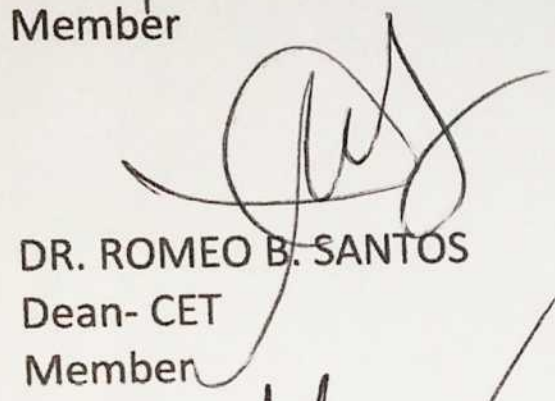 Member
DR. ROMEO B. SANTOS
Dean- CET
Member